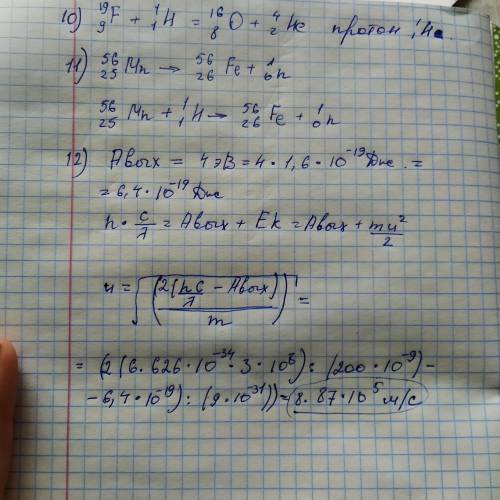 10) ¹⁹₉F + ¹₁H = ¹⁶₈O + ⁴₂He протон
11) ⁵⁶₂₅Mn → ⁵⁶₂₆Fe + ¹₀n
⁵⁶₂₅Mn + ¹₁H → ⁵⁶₂₆Fe + ¹₀n
12) Aвых = 4 эВ = 4 · 1,6 · 10⁻¹⁹ Дж. =
= 6,4 · 10⁻¹⁹ Дж
h · c/λ = Aвых + Ek = Aвых + mu²/2
u = √((2(hc/λ − Aвых))/m) =
= (2(6.626 · 10⁻³⁴ · 3 · 10⁸) : (200 · 10⁻⁹) −
− 6,4 · 10⁻¹⁹) : (9 · 10⁻³¹)) = (8.87 · 10⁵ м/с